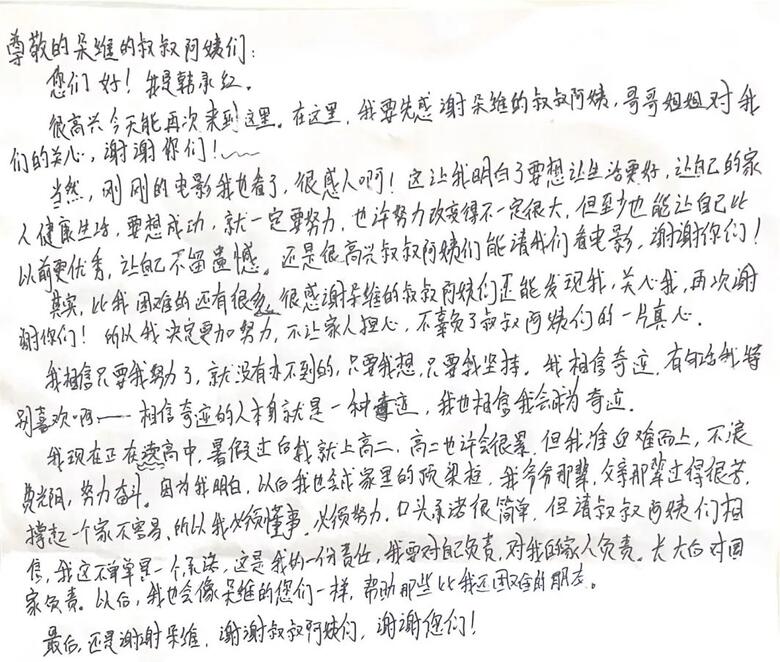 尊敬的朵维的叔叔阿姨们:
您们好!我是韩永红。
很高兴今天能再次来到这里。在这里,我要先感谢朵维的叔叔阿姨,哥哥姐姐对我
们的关心,谢谢你们!
当然,刚刚的电影我也看了,很感人啊!这让我明白了要想让生活更好,让自己的家
人健康生活,要想成功,就一定要努力,也许努力改变得不一定很大,但至少也能让自己比
以前更优秀,让自己不留遗憾。还是很高兴叔叔阿姨们能请我们看电影,谢谢你们!
其实,比我困难的还有很多,很感谢朵维的叔叔阿姨们还能发现我,关心我,再次谢
谢你们!所以我决定更加努力,不让家人担心,不辜负了叔叔阿姨们的一片真心。
我相信只要我努力了,就没有办不到的,只要我想,只要我坚持。我相信奇迹,有句话我特
别喜欢啊——相信奇迹的人本身就是一种奇迹,我也相信我会成为奇迹。
我现在正在读高中,暑假过后我就上高二,高二也许会很累,但我准迎难而上,不浪
费光阴,努力奋斗。因为我明白,以后我也会成家里的顶梁柱,我爷爷那辈,父亲那辈过得很苦,
撑起一个家不容易,所以我必须懂事,必须努力,口头承诺很简单,但请叔叔阿姨们相
信,我这不单单是一个承诺,这是我的一份责任,我要对自己负责,对我的家人负责。长大后对国
家负责。以后,我也会像朵维的您们一样,帮助那些比我还困难的朋友。
最后,还是谢谢朵维,谢谢叔叔阿姨们,谢谢您们!